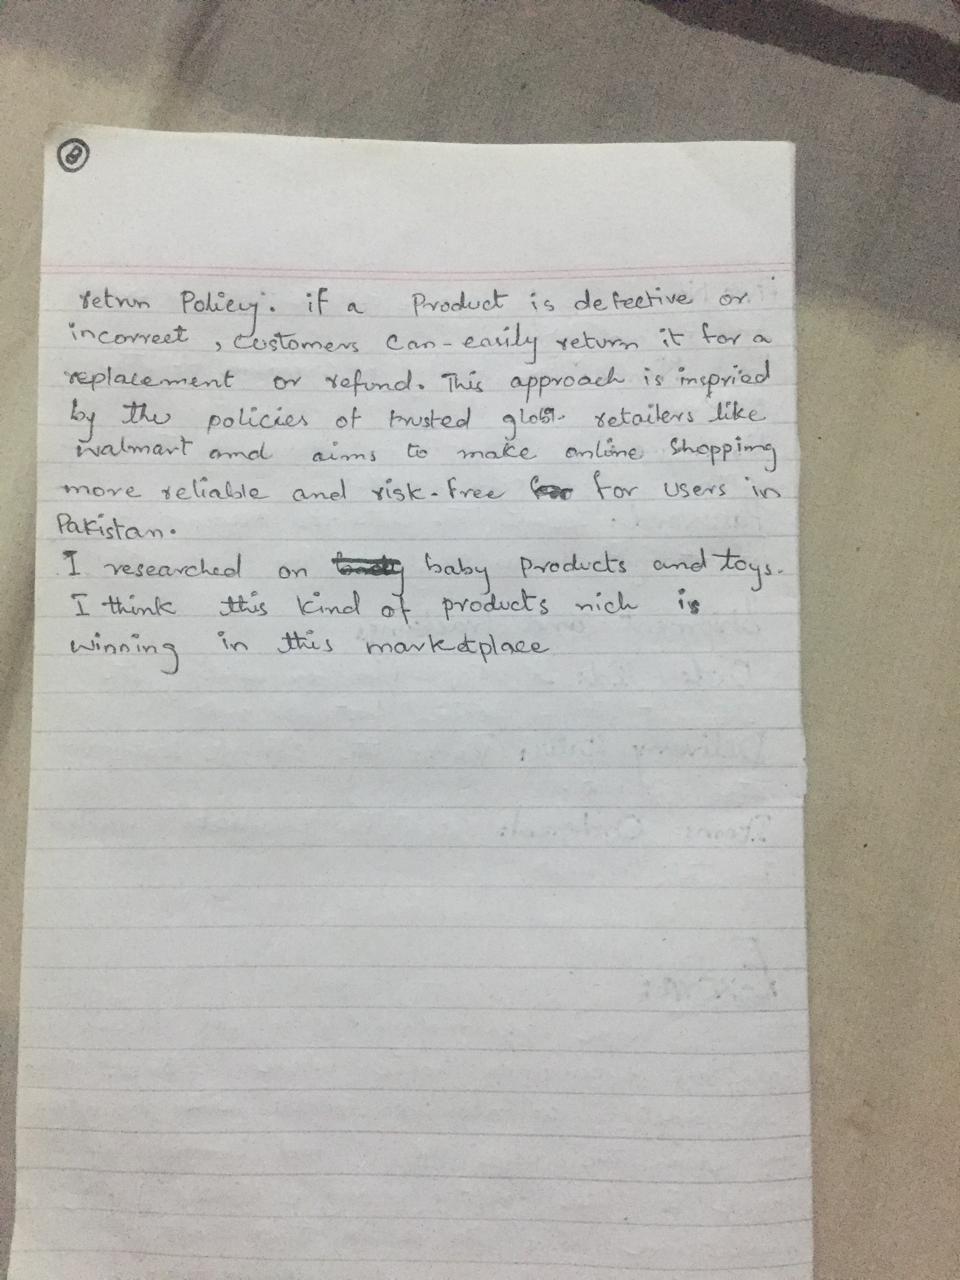 retrun Policy. if a Product is defective or
incorrect, Costomers Can-easily return it for a
replacement or refund. This approach is inspried
by the policies of trusted retailers like
walmart and aims to make online Shopping
more reliable and risk-free for users in
Pakistan.
I researched on baby products and toys.
I think this kind of products nich is
winning in this marketplace